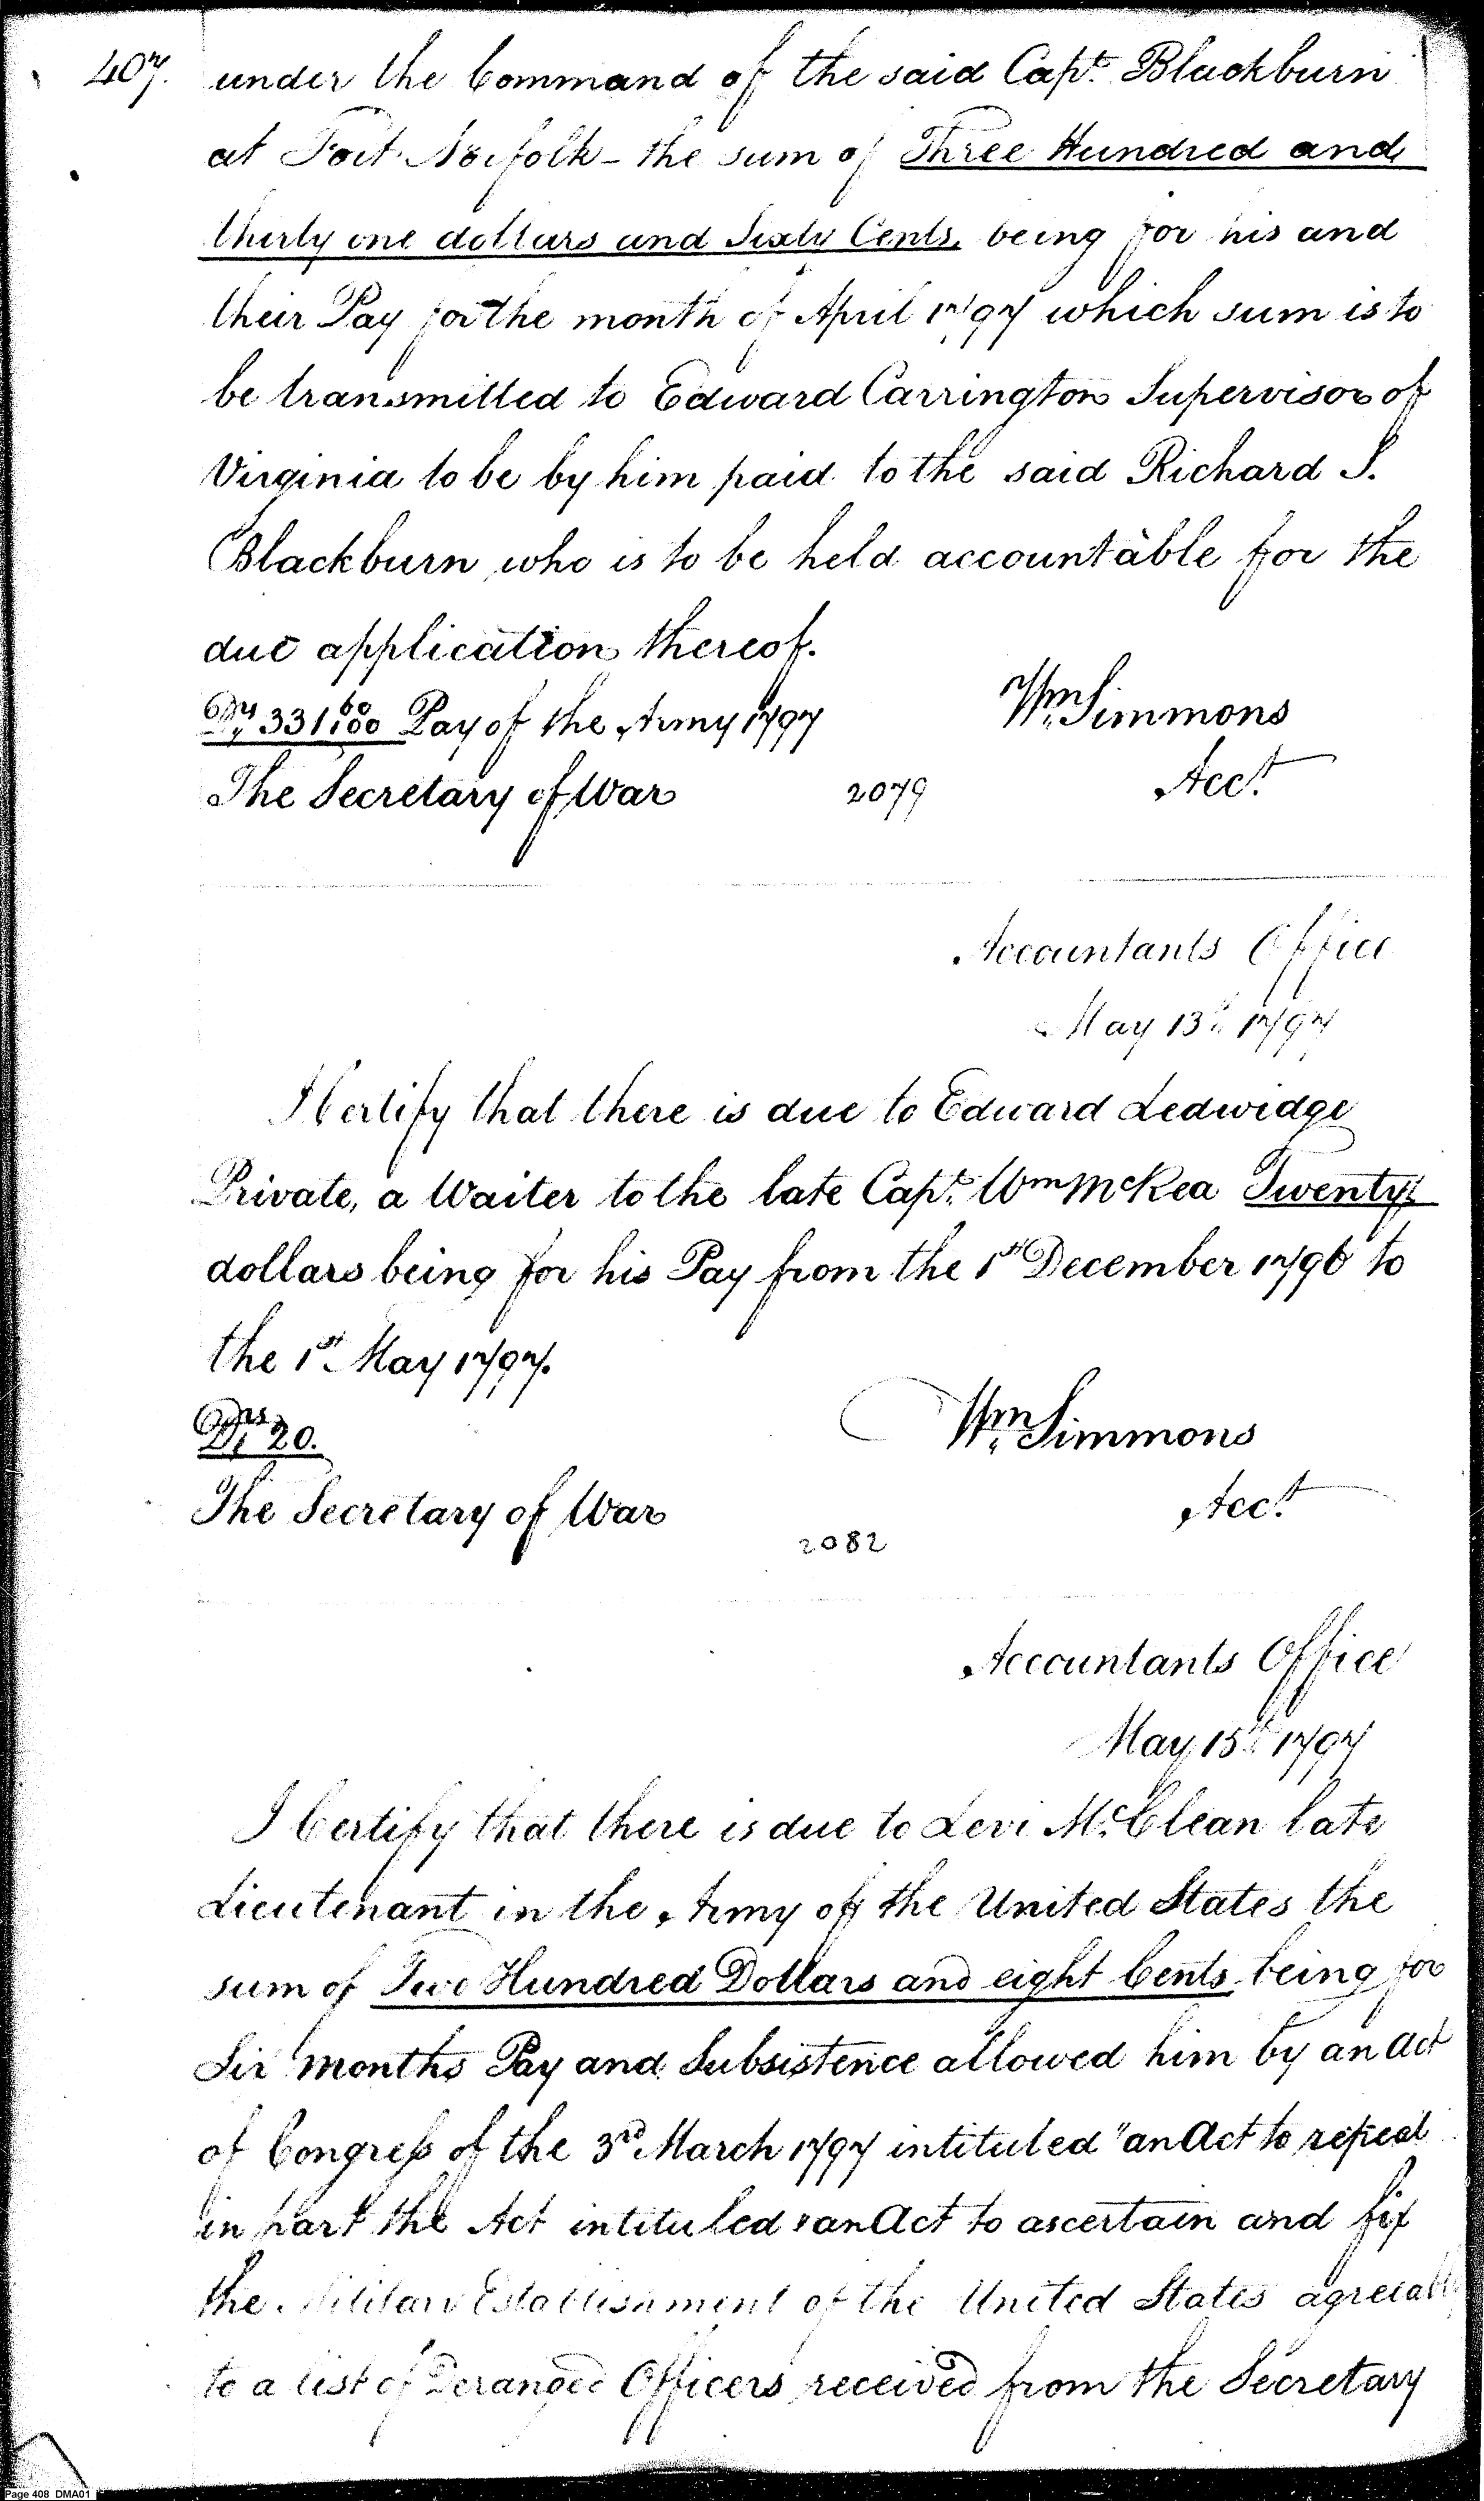 407.
under the Command of the said Capt. Blackburn
at Fort Norfolk - the sum of Three Hundred and
thirty one dollars and Sixty Cents, being for his and
their Pay for the month of April 1797 which sum is to
be transmitted to Edward Carrington Supervisor of
Virginia to be by him paid to the said Richard S.
Blackburn who is to be held accountable for the
due application thereof.
Drs 331 60/100 Pay of the Army 1797
Wm Simmons
The Secretary of War
2079
Acct.
Accountants Office
May 13th 1797
I Certify that there is due to Edward Ledwidge
Private, a Waiter to the late Capt. Wm McRea Twenty
dollars being for his Pay from the 1st December 1796 to
the 1st May 1797.
Drs 20.
Wm Simmons
The Secretary of War
Acct.
2082
Accountants Office
May 15th 1797
I Certify that there is due to Levi McClean late
Lieutenant in the Army of the United States the
sum of Two Hundred Dollars and eight Cents, being for
Six months Pay and Subsistence allowed him by an Act
of Congress of the 3rd March 1797 intituled "an Act to repeal
in part the Act intituled "an Act to ascertain and fix
the Military Establishment of the United States agreeably
to a list of Deranged Officers received from the Secretary
Page 408 DMA01